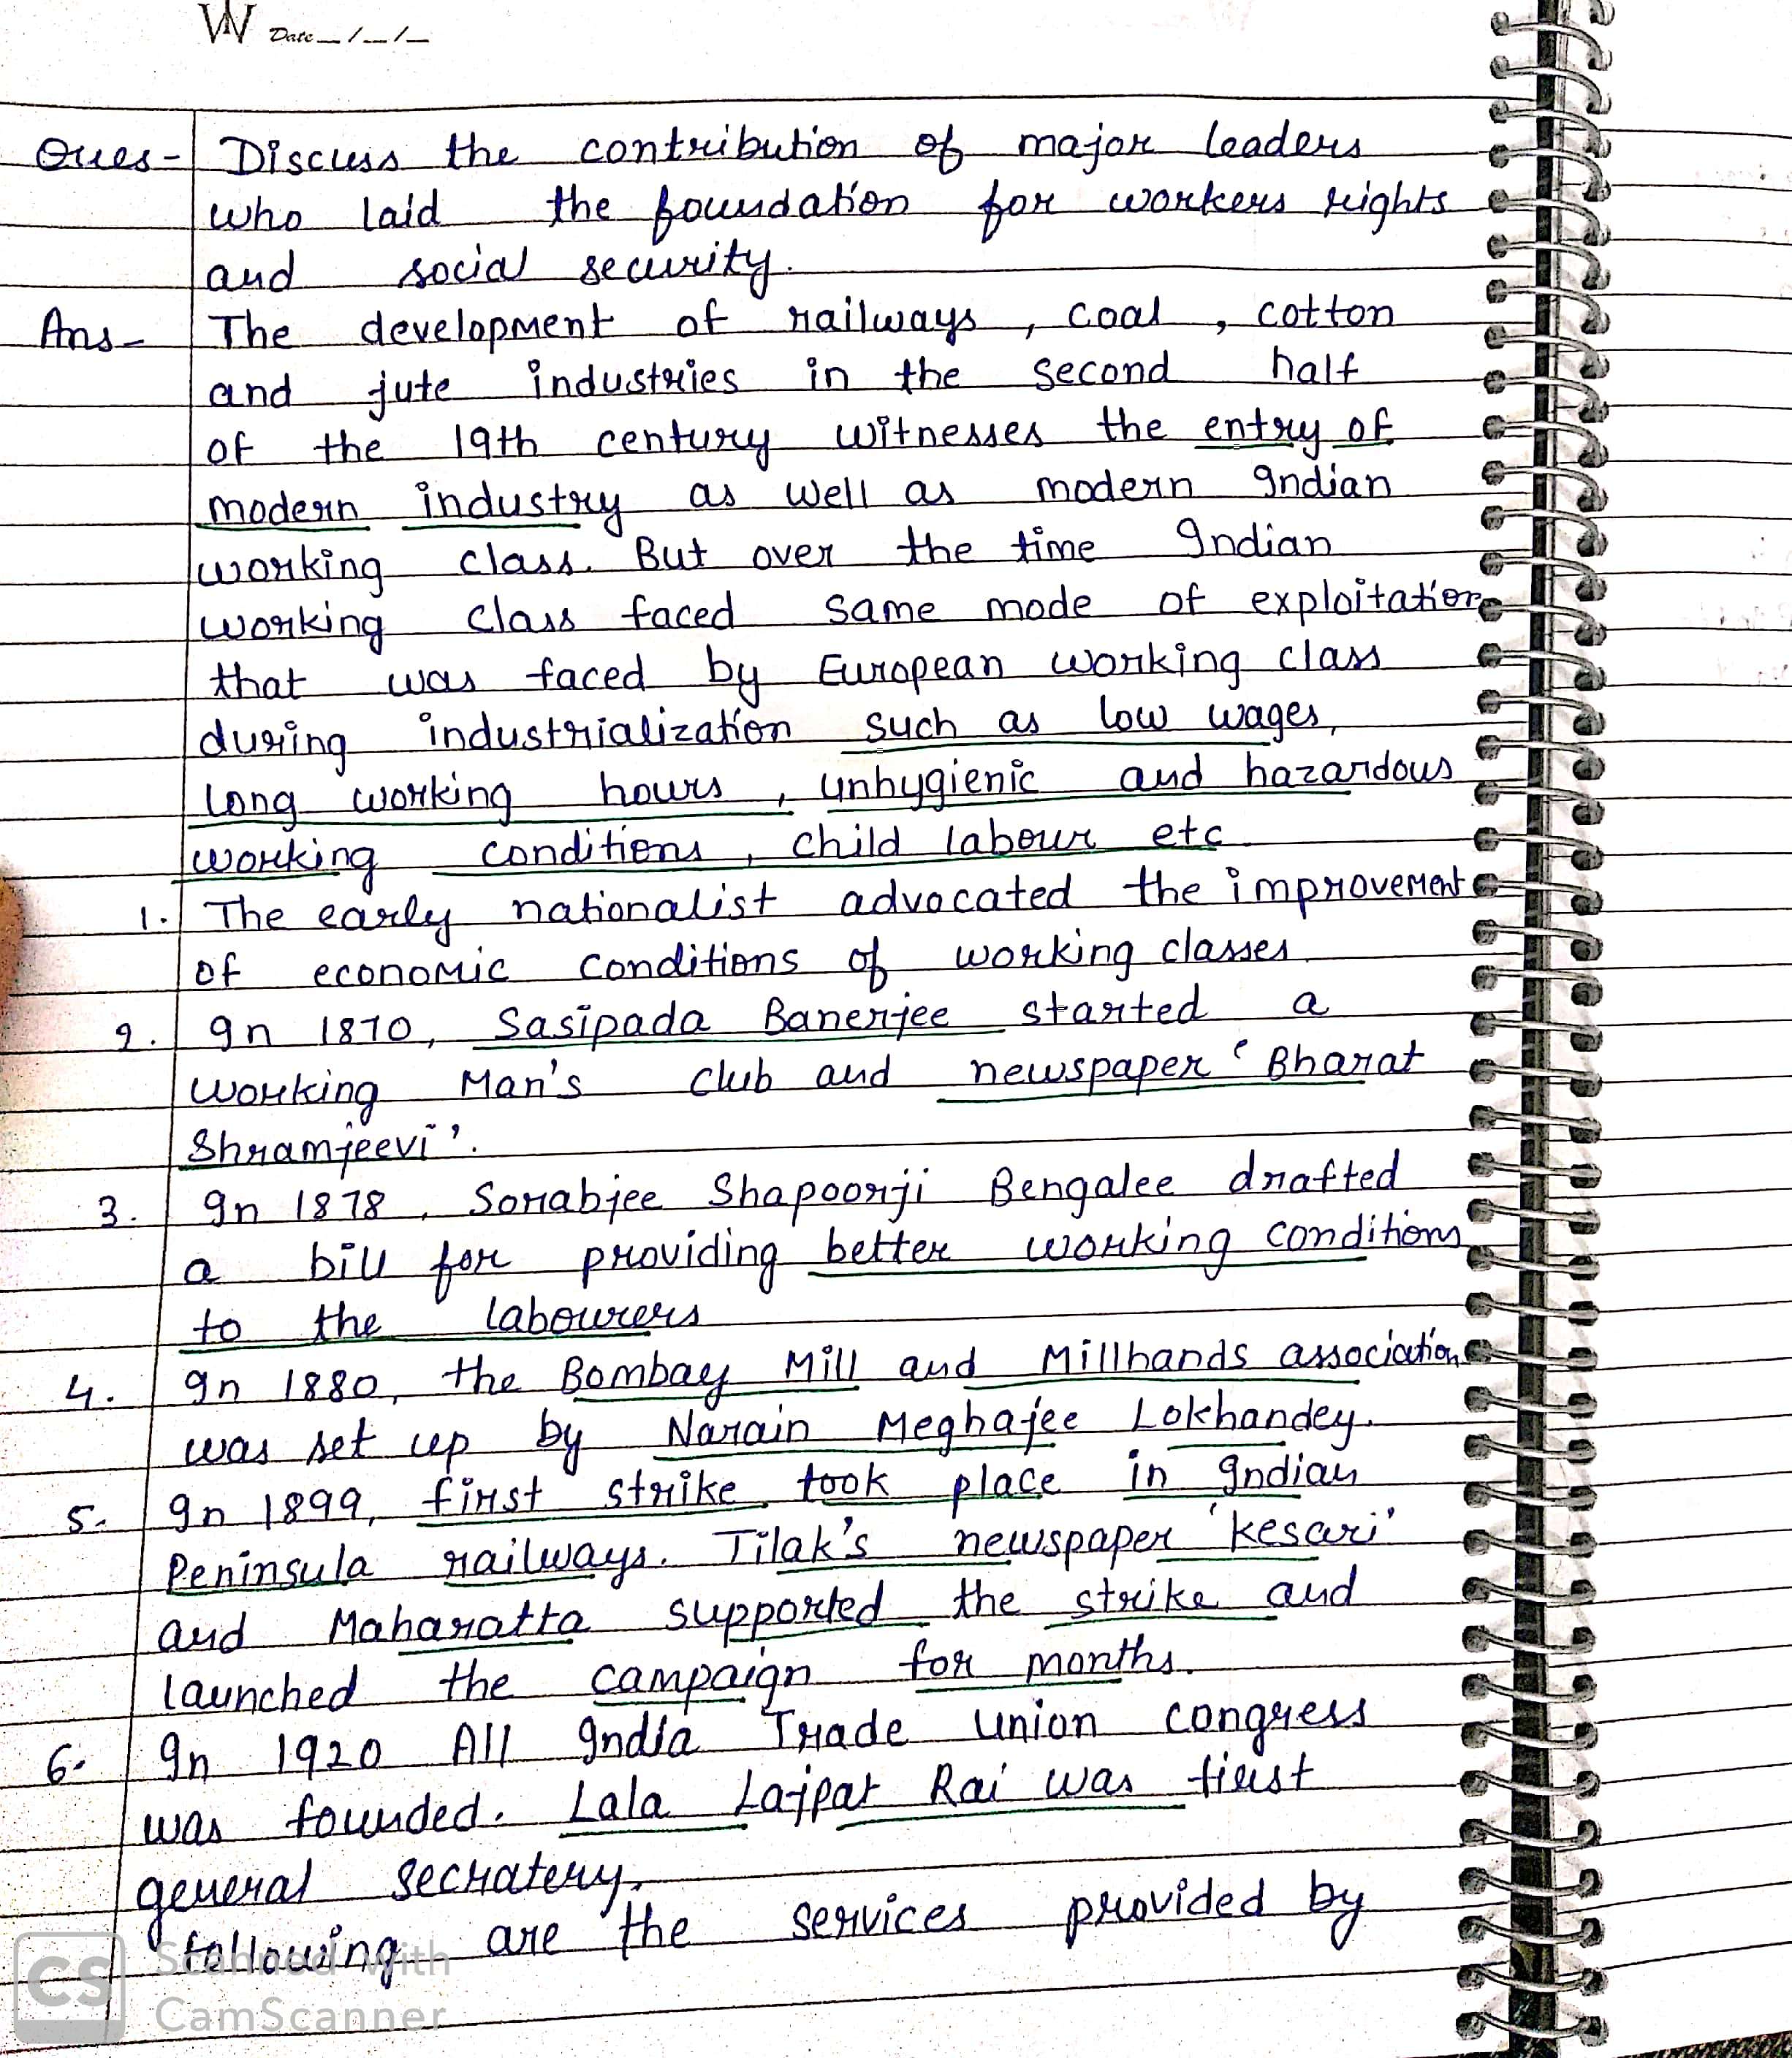 W Date__/__/__
Ques- Discuss the contribution of major leaders
who laid the foundation for workers rights
and social security.
Ans- The development of railways, coal, cotton
and jute industries in the second half
of the 19th century witnesses the entry of
modern industry as well as modern Indian
working class. But over the time Indian
working class faced same mode of exploitation
that was faced by European working class
during industrialization such as low wages,
long working hours, unhygienic and hazardous
working conditions, child labour etc.
1. The early nationalist advocated the improvement
of economic conditions of working classes.
2. In 1870, Sasipada Banerjee started a
working Man's club and newspaper 'Bharat
Shramjeevi'.
3. In 1878, Sorabjee Shapoorji Bengalee drafted
a bill for providing better working conditions
to the labourers
4. In 1880, the Bombay Mill and Millhands association
was set up by Narain Meghajee Lokhandey.
5. In 1899, first strike took place in Indian
Peninsula railways. Tilak's newspaper 'Kesari'
and Maharatta supported the strike and
launched the campaign for months.
6. In 1920 All India Trade union congress
was founded. Lala Lajpat Rai was first
general secratery.
following are the services provided by
CS Scanned with
CamScanner